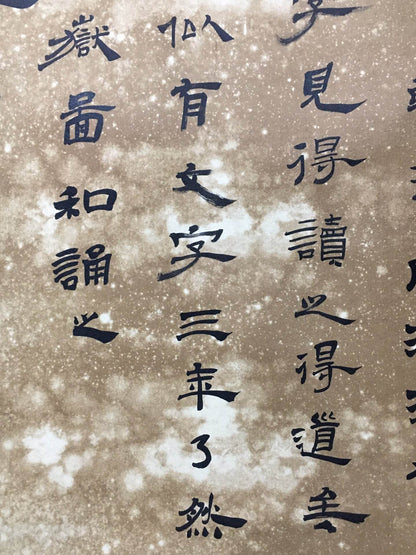 字見得讀之得道矣
似有文字三年了然
嶽啚和誦之